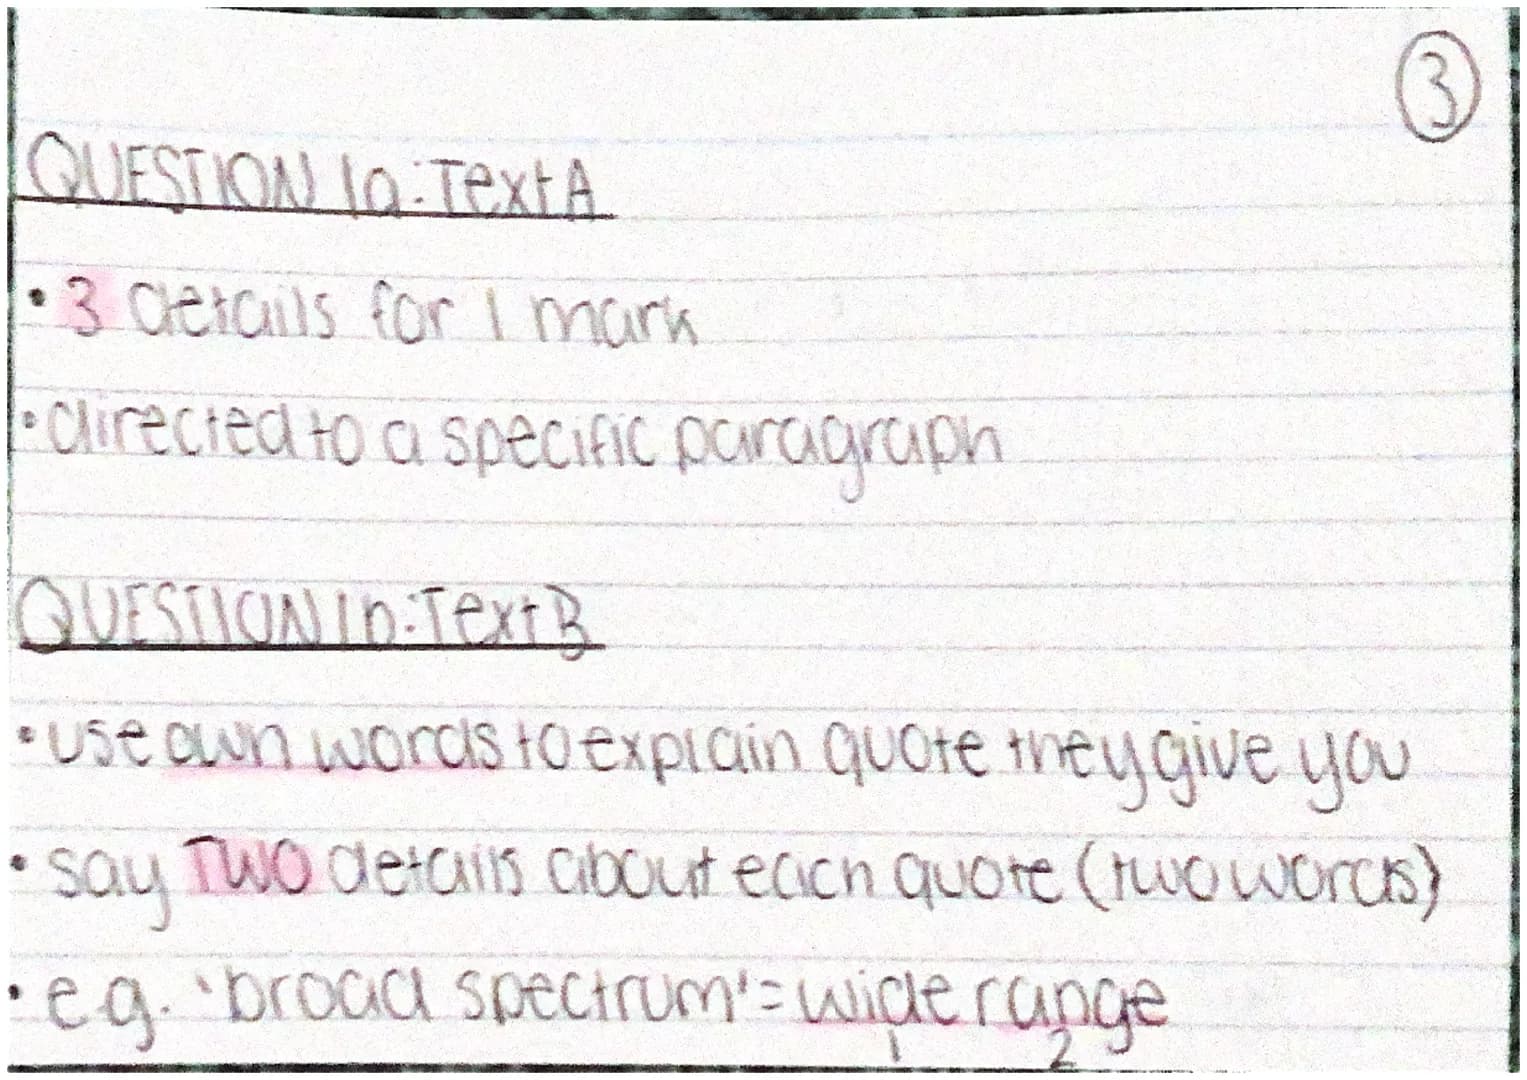 3
QUESTION 1a: Text A
• 3 details for 1 mark
• directed to a specific paragraph
QUESTION 1b: Text B
• use own words to explain quote they give you
• say TWO details about each quote (two words)
• e.g. 'broad spectrum' = wide range
1 2